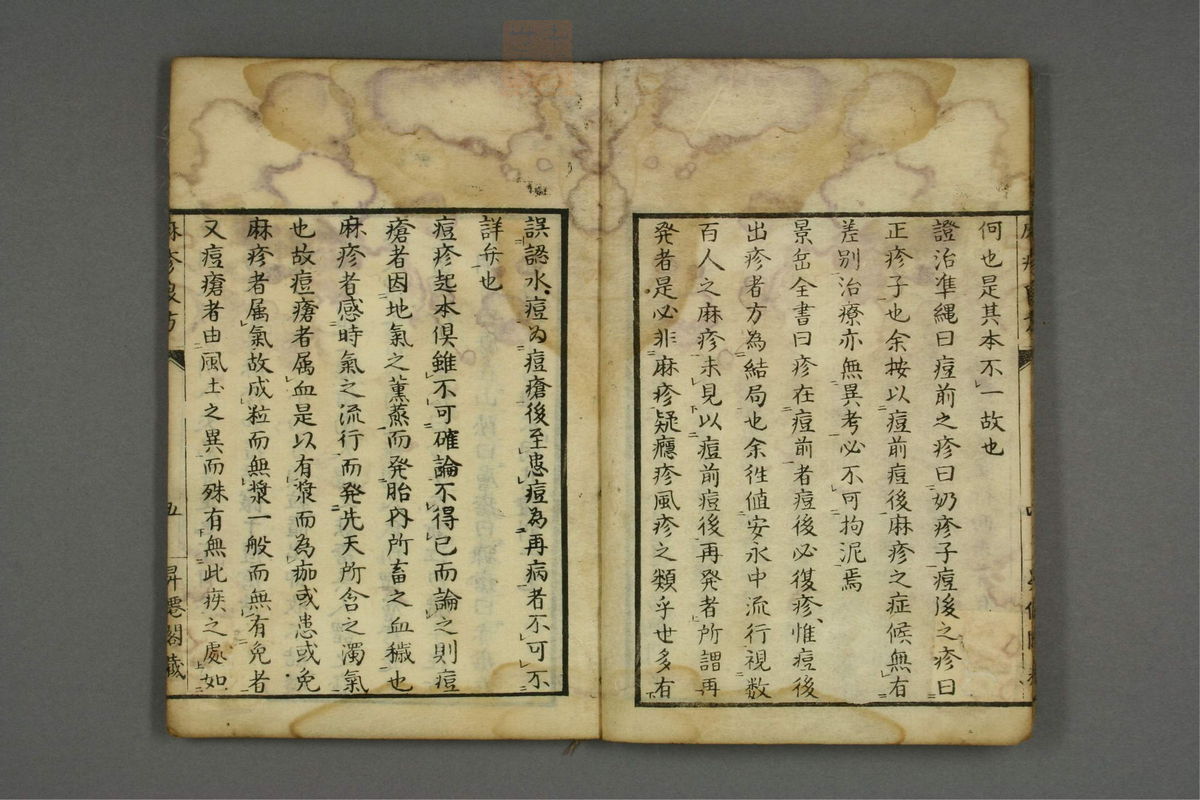 何也是其本不一故也
證治準縄曰痘前之疹曰奶疹子痘後之疹曰
正疹子也余按以痘前痘後麻疹之症候無有
差別治療亦無異考必不可拘泥焉
景岳全書曰疹在痘前者痘後必復疹惟痘後
出疹者方為結局也余徃値安永中流行視数
百人之麻疹未見以痘前痘後再発者所謂再
発者是必非麻疹疑癮疹風疹之類乎世多有
誤認水痘為痘瘡後至患痘為再病者不可不
詳弁也
痘疹起本俱雖不可確論不得已而論之則痘
瘡者因地氣之薫蒸而発胎内所畜之血穢也
麻疹者感時氣之流行而発先天所含之濁氣
也故痘瘡者属血是以有漿而為痂或患或免
麻疹者属氣故成粒而無漿一般而無有免者
又痘瘡者由風土之異而殊有無此疾之處如
麻疹 方
五
昇遷閣藏